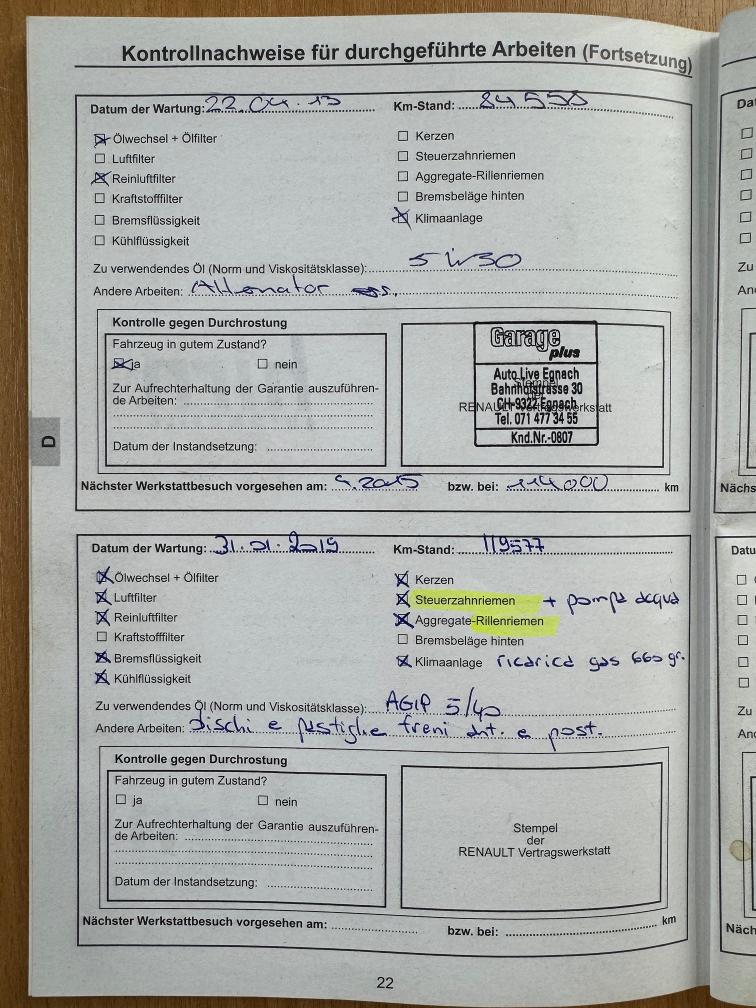 Kontrollnachweise für durchgeführte Arbeiten (Fortsetzung)
Datum der Wartung: 22.04.13 Km-Stand: 84558
Ölwechsel + Ölfilter
Luftfilter
Reinluftfilter
Kraftstofffilter
Bremsflüssigkeit
Kühlflüssigkeit
Kerzen
Steuerzahnriemen
Aggregate-Rillenriemen
Bremsbeläge hinten
Klimaanlage
Zu verwendendes Öl (Norm und Viskositätsklasse): 5W30
Andere Arbeiten: Alternator
Kontrolle gegen Durchrostung
Fahrzeug in gutem Zustand?
ja nein
Zur Aufrechterhaltung der Garantie auszuführen-
de Arbeiten:
Datum der Instandsetzung:
Garage
plus
Auto Live Egnach
Bahnhofstrasse 30
CH-9322 Egnach
Tel. 071 477 34 55
Knd.Nr.-0807
Stempel
der
RENAULT Vertragswerkstatt
Nächster Werkstattbesuch vorgesehen am: 4.2015 bzw. bei: 114000 km
D
Datum der Wartung: 31.01.2019 Km-Stand: 119577
Ölwechsel + Ölfilter
Luftfilter
Reinluftfilter
Kraftstofffilter
Bremsflüssigkeit
Kühlflüssigkeit
Kerzen
Steuerzahnriemen + pompa acqua
Aggregate-Rillenriemen
Bremsbeläge hinten
Klimaanlage ricarica gas 660 gr.
Zu verwendendes Öl (Norm und Viskositätsklasse): AGIP 5/40
Andere Arbeiten: dischi e pastiglie freni ant. e post.
Kontrolle gegen Durchrostung
Fahrzeug in gutem Zustand?
ja nein
Zur Aufrechterhaltung der Garantie auszuführen-
de Arbeiten:
Datum der Instandsetzung:
Stempel
der
RENAULT Vertragswerkstatt
Nächster Werkstattbesuch vorgesehen am: bzw. bei: km
22